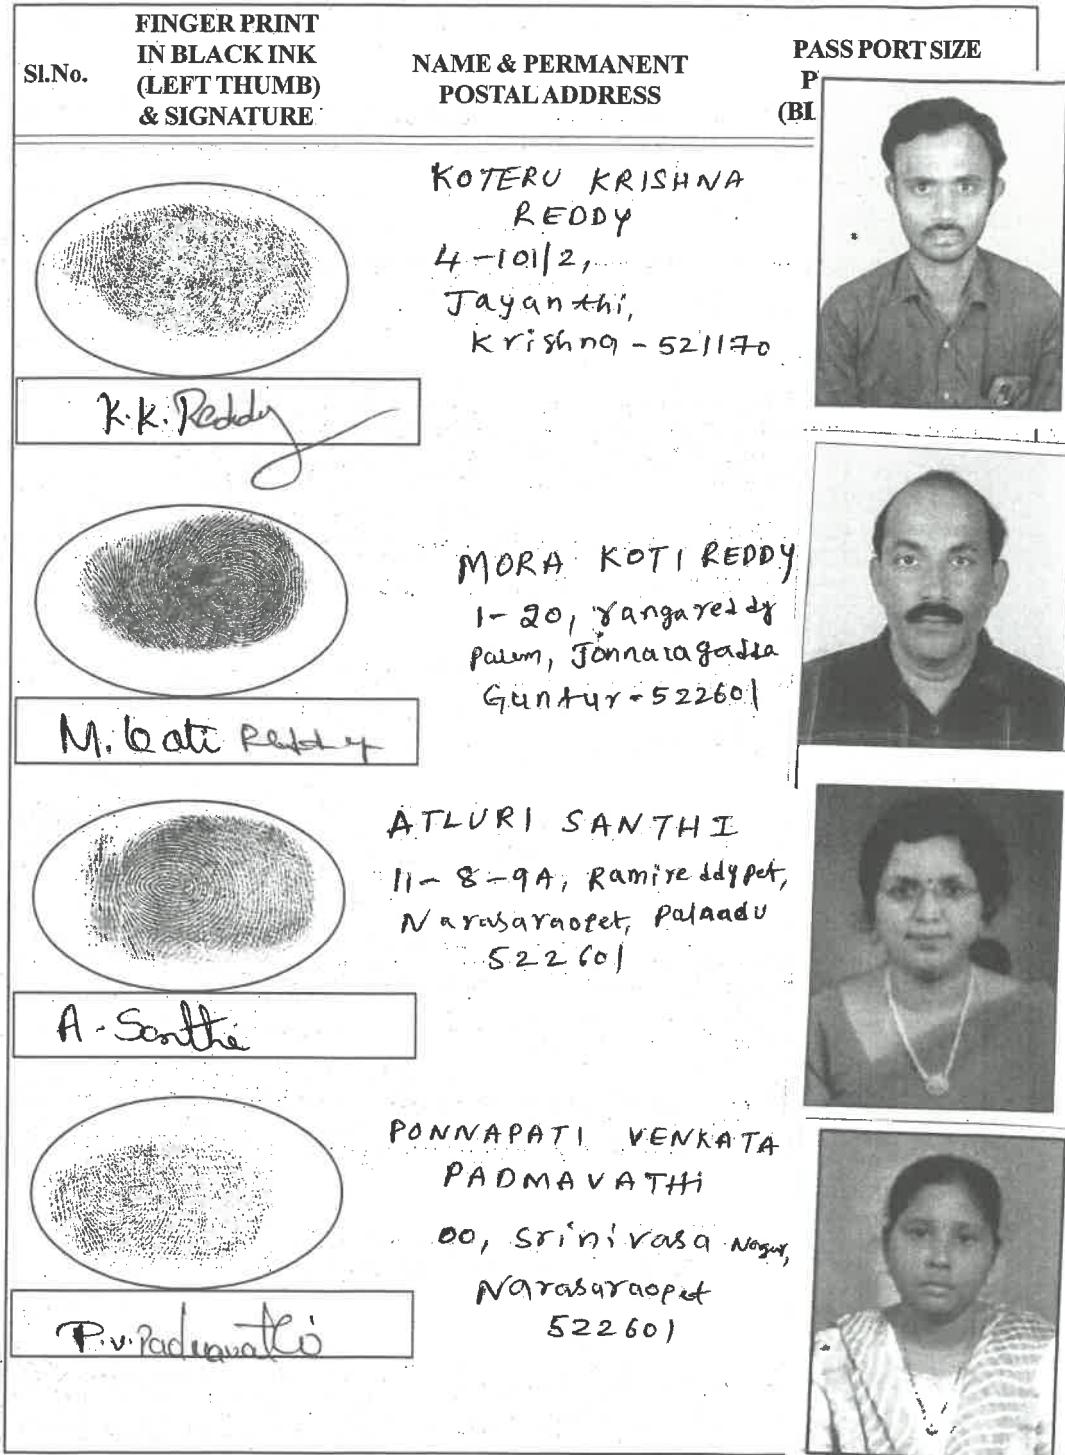 Sl.No.
FINGER PRINT
IN BLACK INK
(LEFT THUMB)
& SIGNATURE
NAME & PERMANENT
POSTAL ADDRESS
PASS PORT SIZE
P
(BL
KOTERU KRISHNA
REDDY
4-101/2,
Jayanthi,
Krishna - 521170
K.K. Reddy
MORA KOTI REDDY
1-20, rangareddy
palem, Jonnalagadda
Guntur - 522601
M. Koti Reddy
ATLURI SANTHI
11-8-9A, Ramireddypet,
Narasaraopet, Palnadu
522601
A. Santhi
PONNAPATI VENKATA
PADMAVATHi
00, Srinivasa Nagar,
Narasaraopet
522601
P.V. Padmavathi